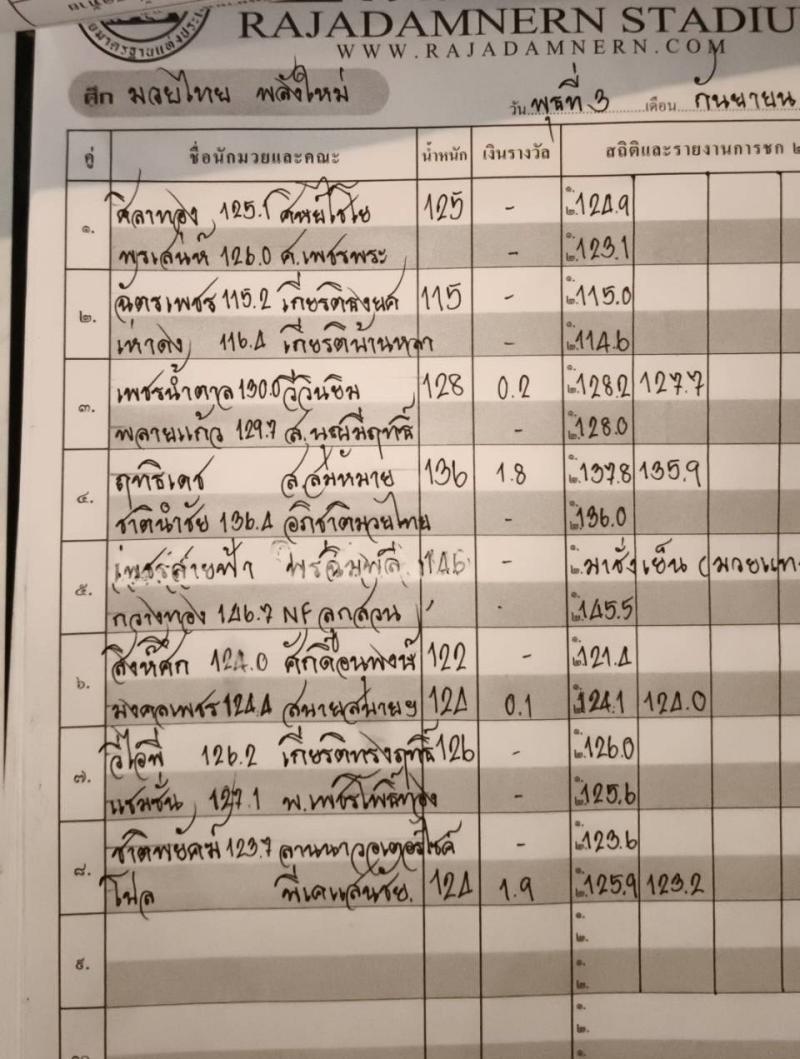 RAJADAMNERN STADIU
WWW.RAJADAMNERN.COM
ศึก มวยไทย พลังใหม่
วัน พุธที่ 3 เดือน กันยายน
คู่ ชื่อนักมวยและคณะ น้ำหนัก เงินรางวัล สถิติและรายงานการชก
๑. ศิลาทอง 125.1 125 - ๑. 124.9
พรเสน่ห์ 126.0 ศ.เพชรพระ - ๒. 123.1
๒. ฉัตรเพชร 115.2 115 - ๑. 115.0
เห่าดง 116.4 เกียรติบ้านหลา - ๒. 114.6
๓. เพชรน้ำตาล 130.0 วีวินยิม 128 0.2 ๑. 128.2 127.7
พลายแก้ว 129.7 ส.บุญมีฤทธิ์ - ๒. 128.0
๔. ฤทธิเดช ส.สมหมาย 136 1.8 ๑. 137.8 135.9
ชาตินำชัย 136.4 อภิชาติมวยไทย - ๒. 136.0
๕. เพชรสายฟ้า 146 - มาชั่งเย็น (มวยแท
กวางทอง 146.7 NF ลูกสวน ๒. 145.5
๖. สิงห์ศึก 124.0 122 - ๑. 121.4
มงคลเพชร 124.4 สบายสบายฯ 124 0.1 ๒. 124.1 124.0
๗. วีไอพี 126.2 เกียรติทรงฤทธิ์ 126 - ๑. 126.0
แชมชั่น 127.1 พ.เพชรโพธิ์ทอง - ๒. 125.6
๘. ชาติพยัคฆ์ 123.7 ลานนาวอเตอร์ไซค์ - ๑. 123.6
โปล พีเคแสนชัย. 124 1.9 ๒. 125.9 123.2
๙. ๑.
๒.
๑.
๒.
๑.
๒.
๑.